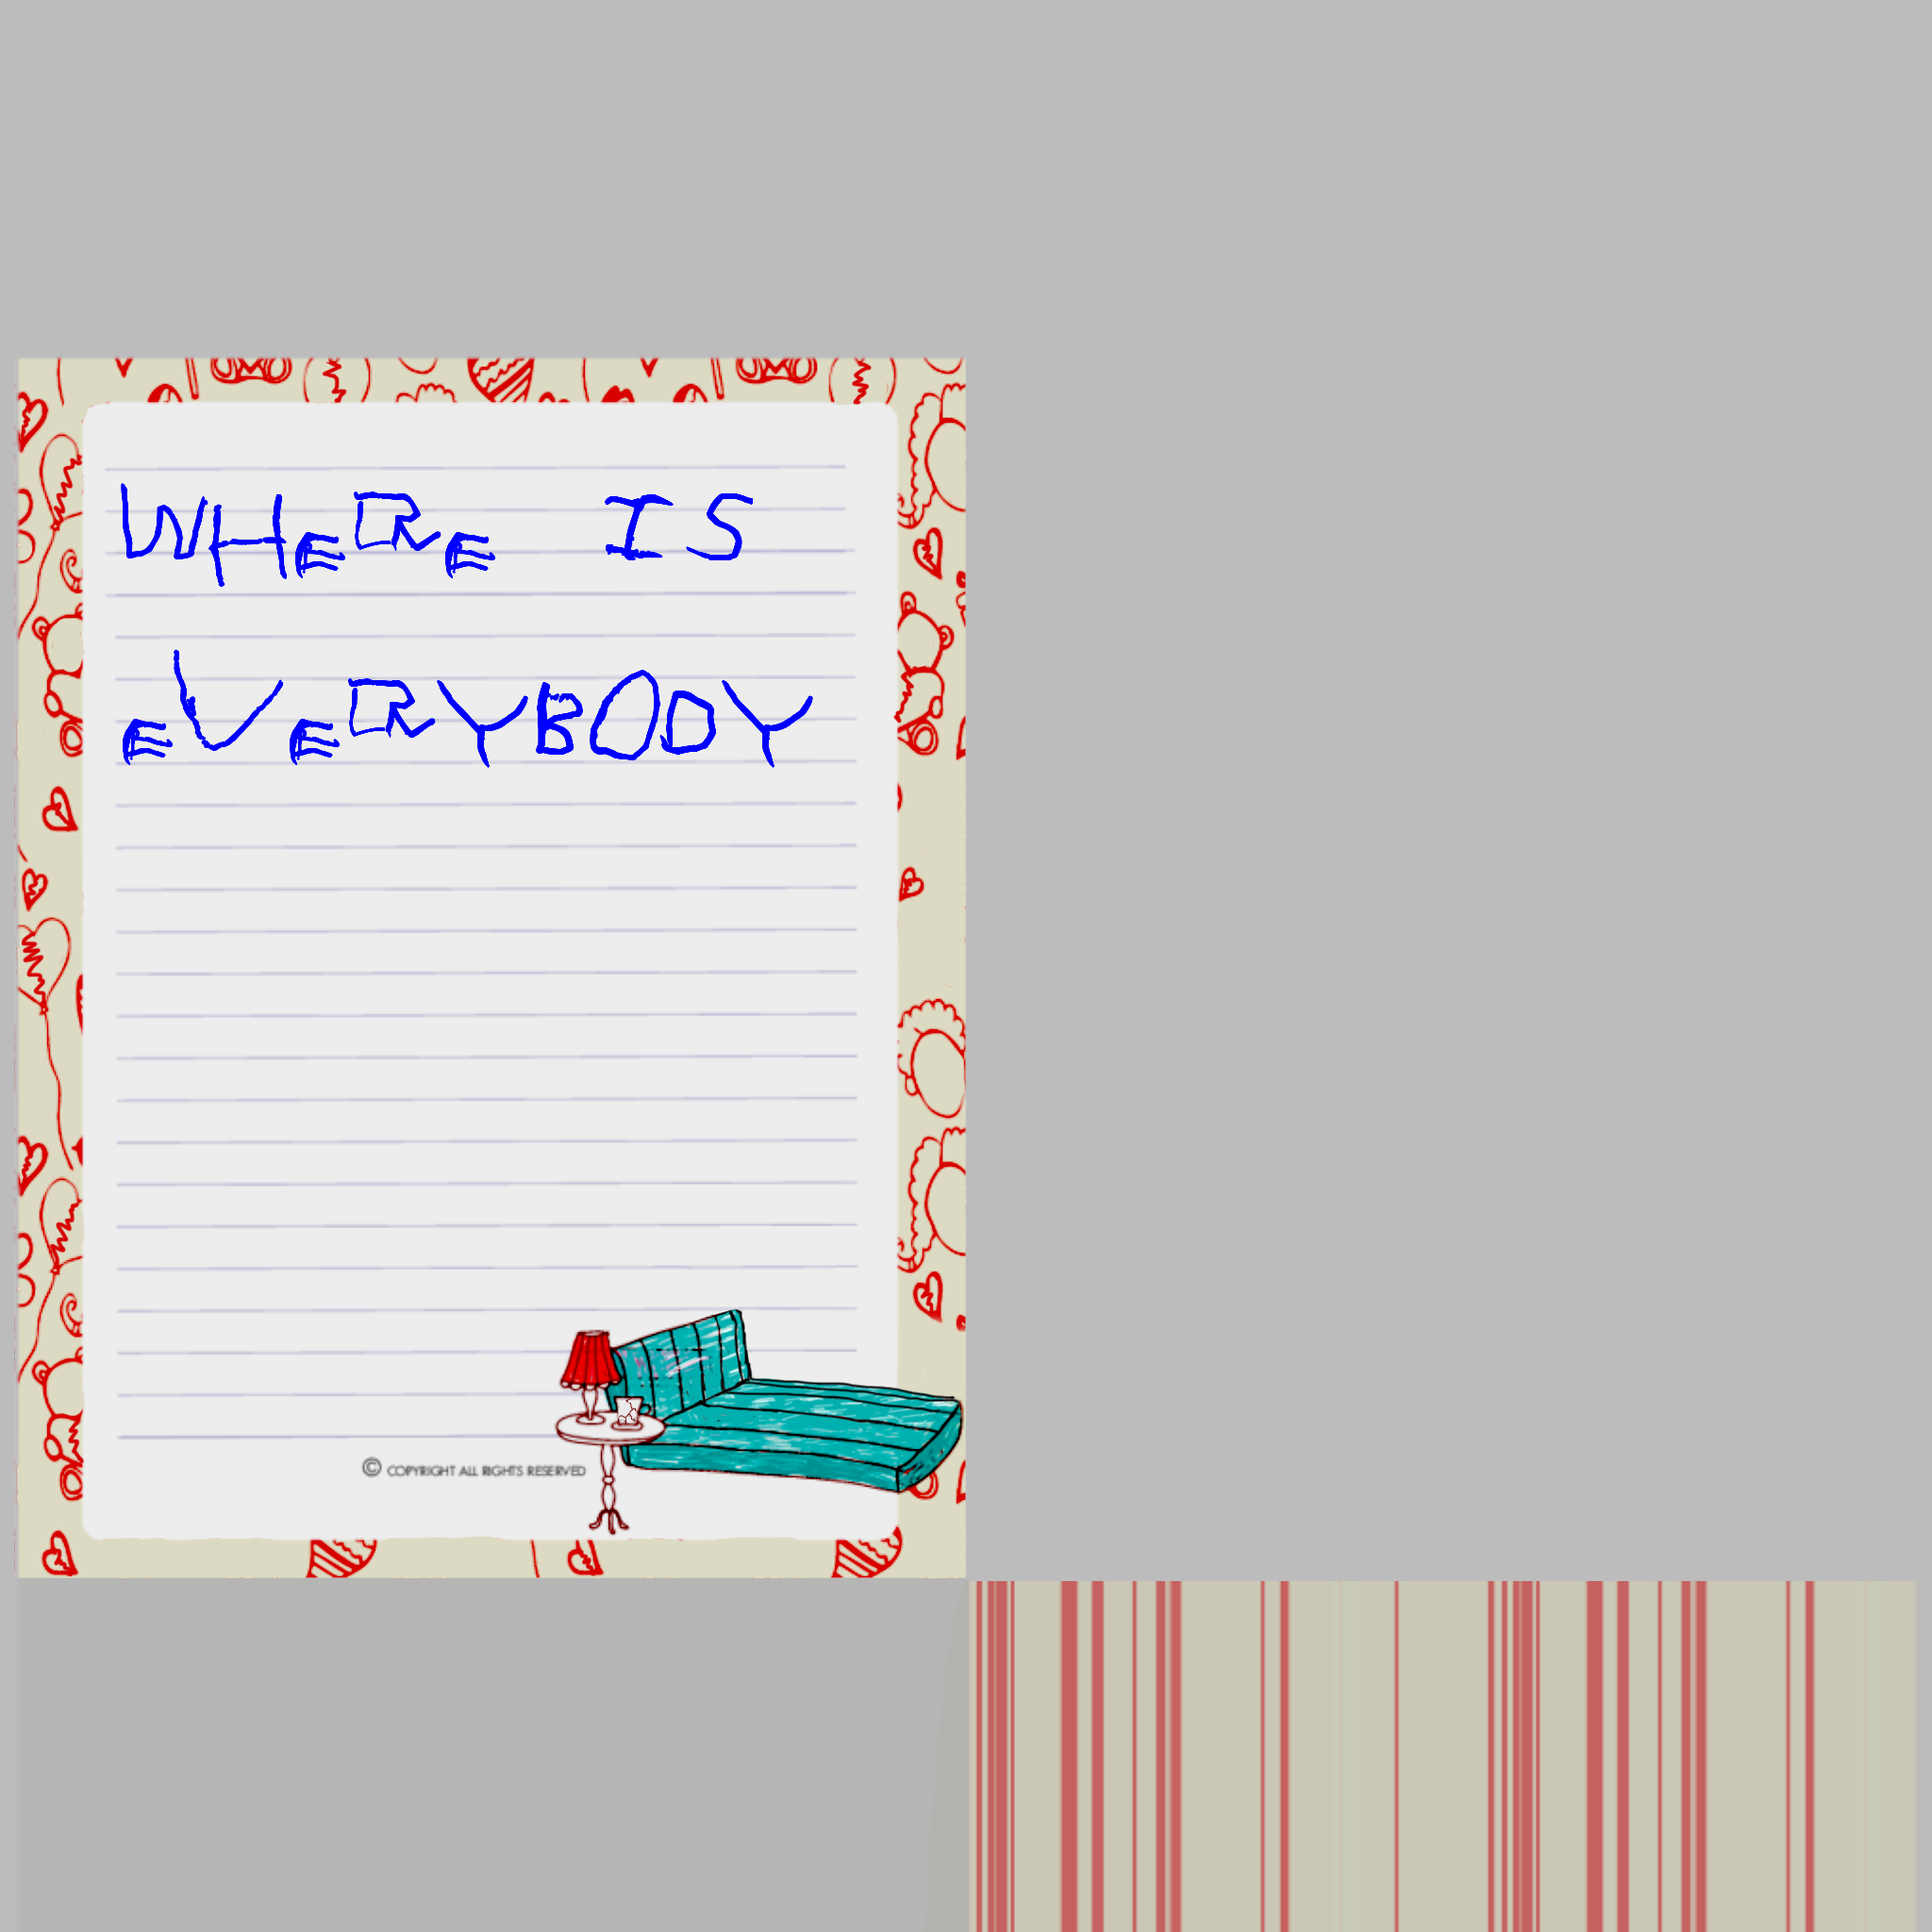 WHERE IS
EVERYBODY
© COPYRIGHT ALL RIGHTS RESERVED